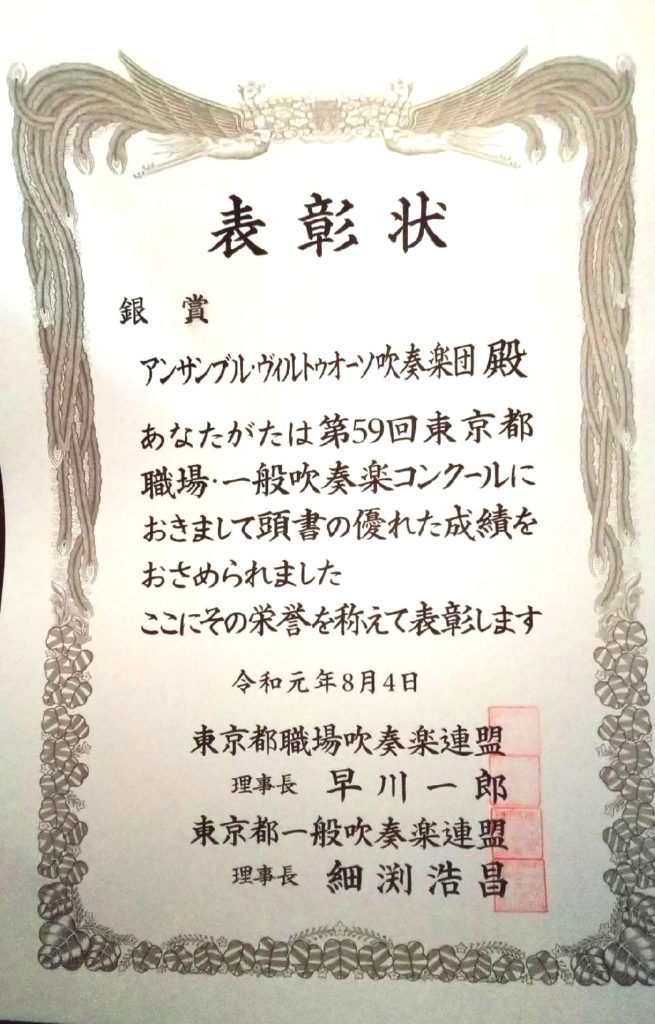 表彰状
銀賞
アンサンブル・ヴィルトゥオーソ吹奏楽団 殿
あなたがたは第59回東京都
職場・一般吹奏楽コンクールに
おきまして頭書の優れた成績を
おさめられました
ここにその栄誉を称えて表彰します
令和元年8月4日
東京都職場吹奏楽連盟
理事長 早川一郎
東京都一般吹奏楽連盟
理事長 細渕浩昌